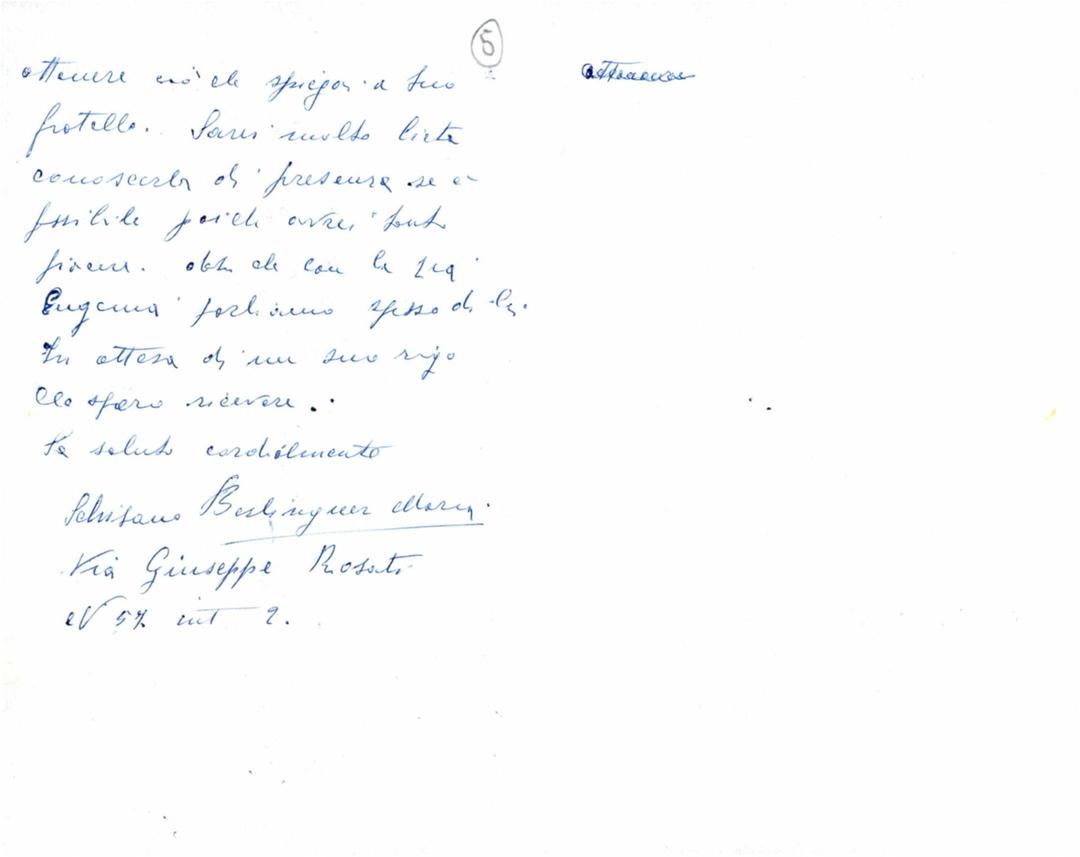 5
ottenere ciò che spiegai a Suo
fratello. Sarei molto lieta
conoscerla di presenza se è
possibile poichè avrei tanto
piacere. che con la zia
Eugenia parliamo spesso di lei.
In attesa di un suo rigo
che spero ricevere.
La saluto cordialmente
Schifano Berlinguer Maria.
Via Giuseppe Rosati
N 57 int 2.